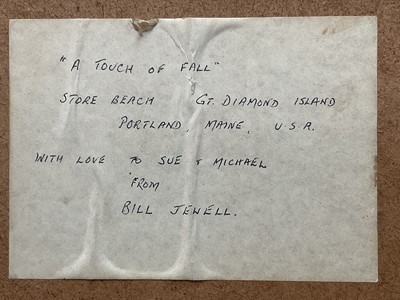 "A TOUCH OF FALL"
STORE BEACH GT. DIAMOND ISLAND
PORTLAND, MAINE, U.S.A.
WITH LOVE TO SUE & MICHAEL
FROM
BILL JEWELL.